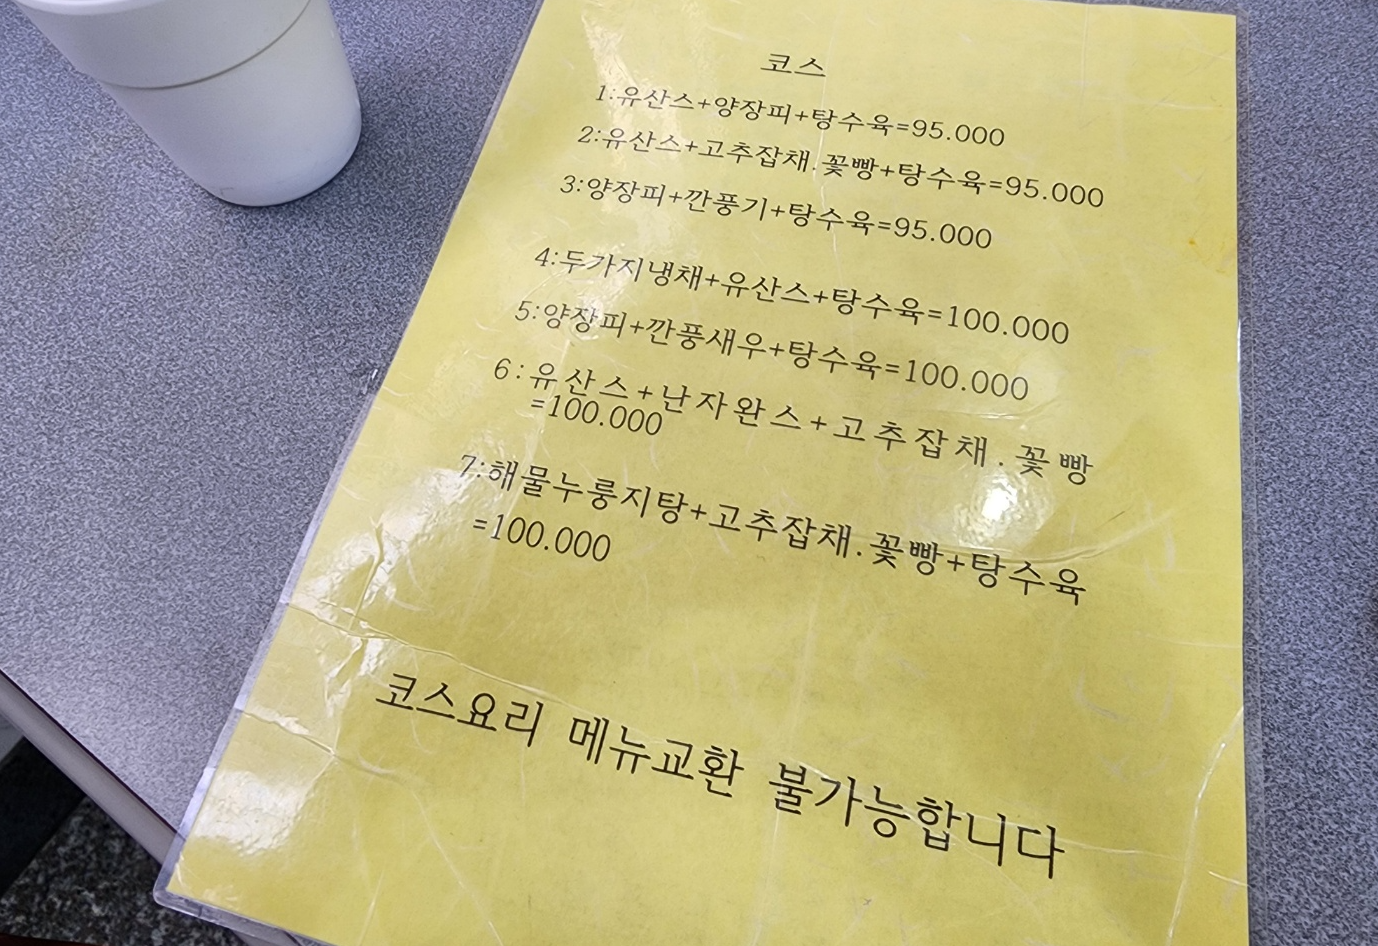 코스
1:유산스+양장피+탕수육=95.000
2:유산스+고추잡채.꽃빵+탕수육=95.000
3:양장피+깐풍기+탕수육=95.000
4:두가지냉채+유산스+탕수육=100.000
5:양장피+깐풍새우+탕수육=100.000
6:유산스+난자완스+고추잡채.꽃빵
=100.000
7:해물누룽지탕+고추잡채.꽃빵+탕수육
=100.000
코스요리 메뉴교환 불가능합니다